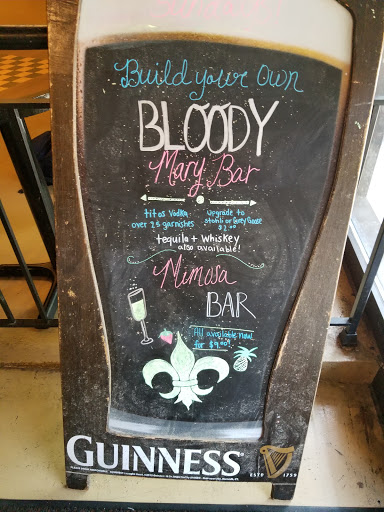 Build your Own
BLOODY
Mary Bar
titos Vodka
over 25 garnishes
upgrade to
stohli or Grey Goose
$2.00
tequila + Whiskey
also available!
Mimosa
BAR
All available now
for $9.00!
GUINNESS
ESTD 1759